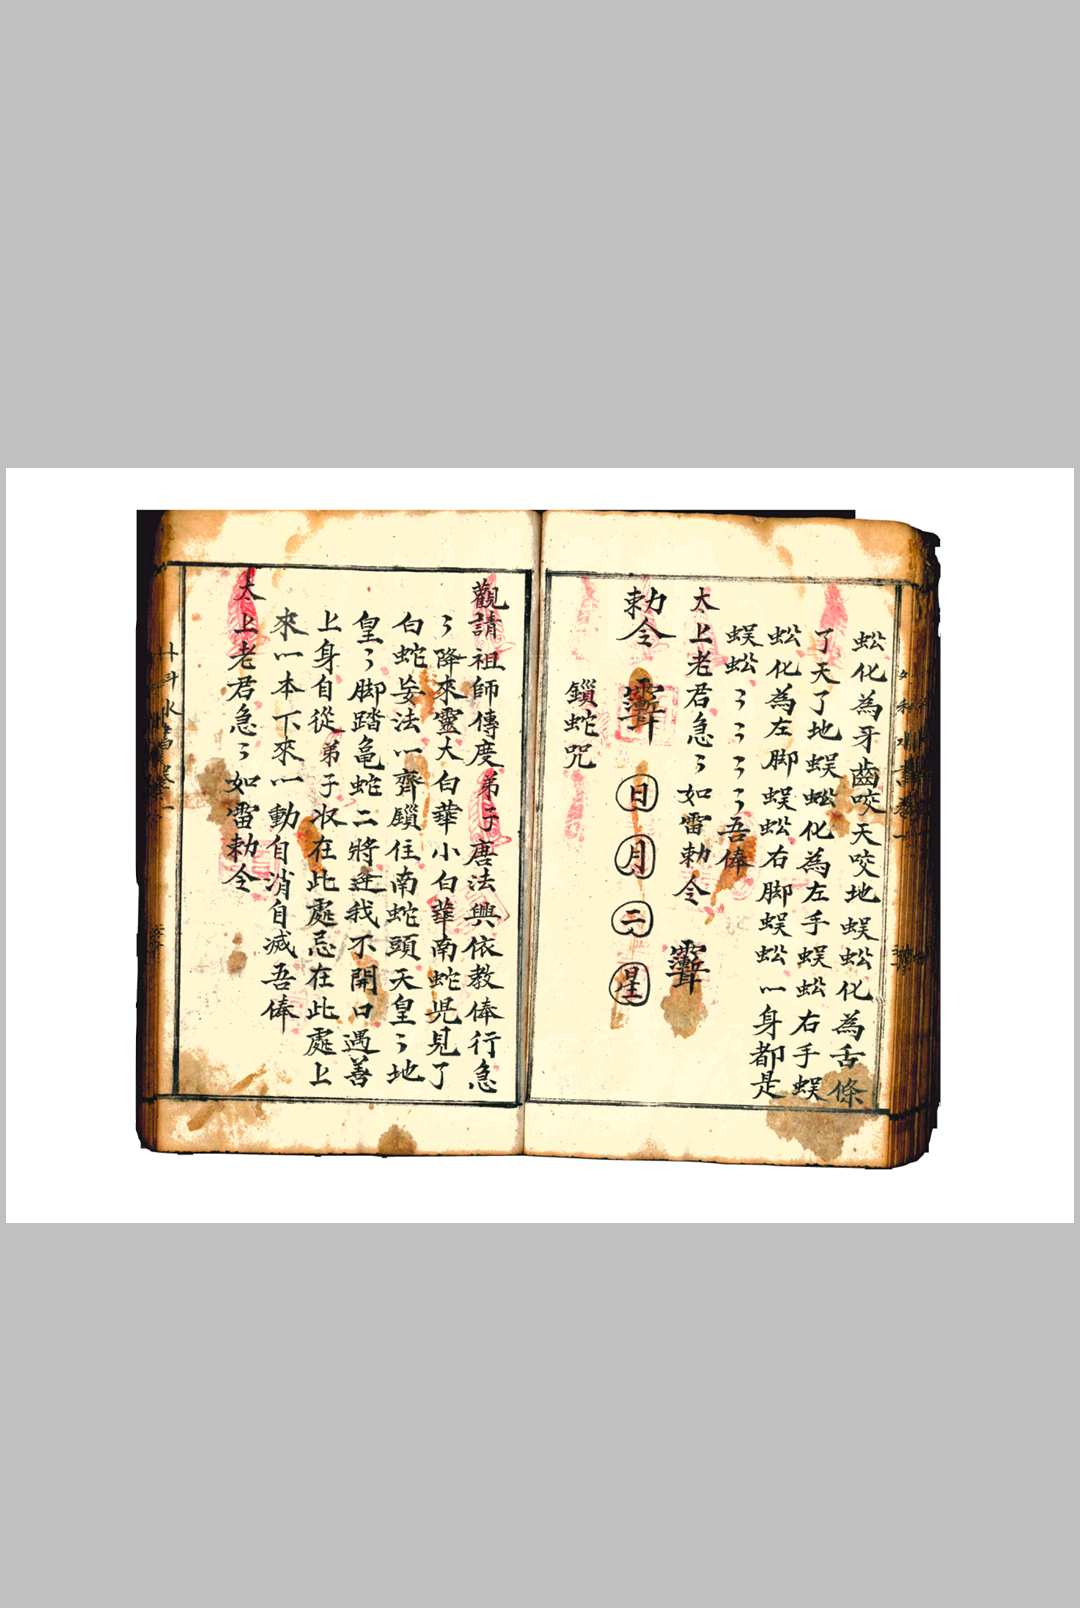 蚣化為牙齒咬天咬地蜈蚣化為舌條
了天了地蜈蚣化為左手蜈蚣右手蜈
蚣化為左脚蜈蚣右脚蜈蚣一身都是
蜈蚣〻〻〻〻吾俸
太上老君急〻如雷勅令
勅令 日 月 二 星
鎖蛇咒
觀請祖師傳度弟子唐法興依教俸行急
〻降來靈大白華小白華南蛇児見了
白蛇妛法一齊鎖住南蛇頭天皇〻地
皇〻脚踏亀蛇二將 我不開口遇善
上身自從弟子收在此處忌在此處上
來一本下來一動自消自滅吾俸
太上老君急〻如雷勅令